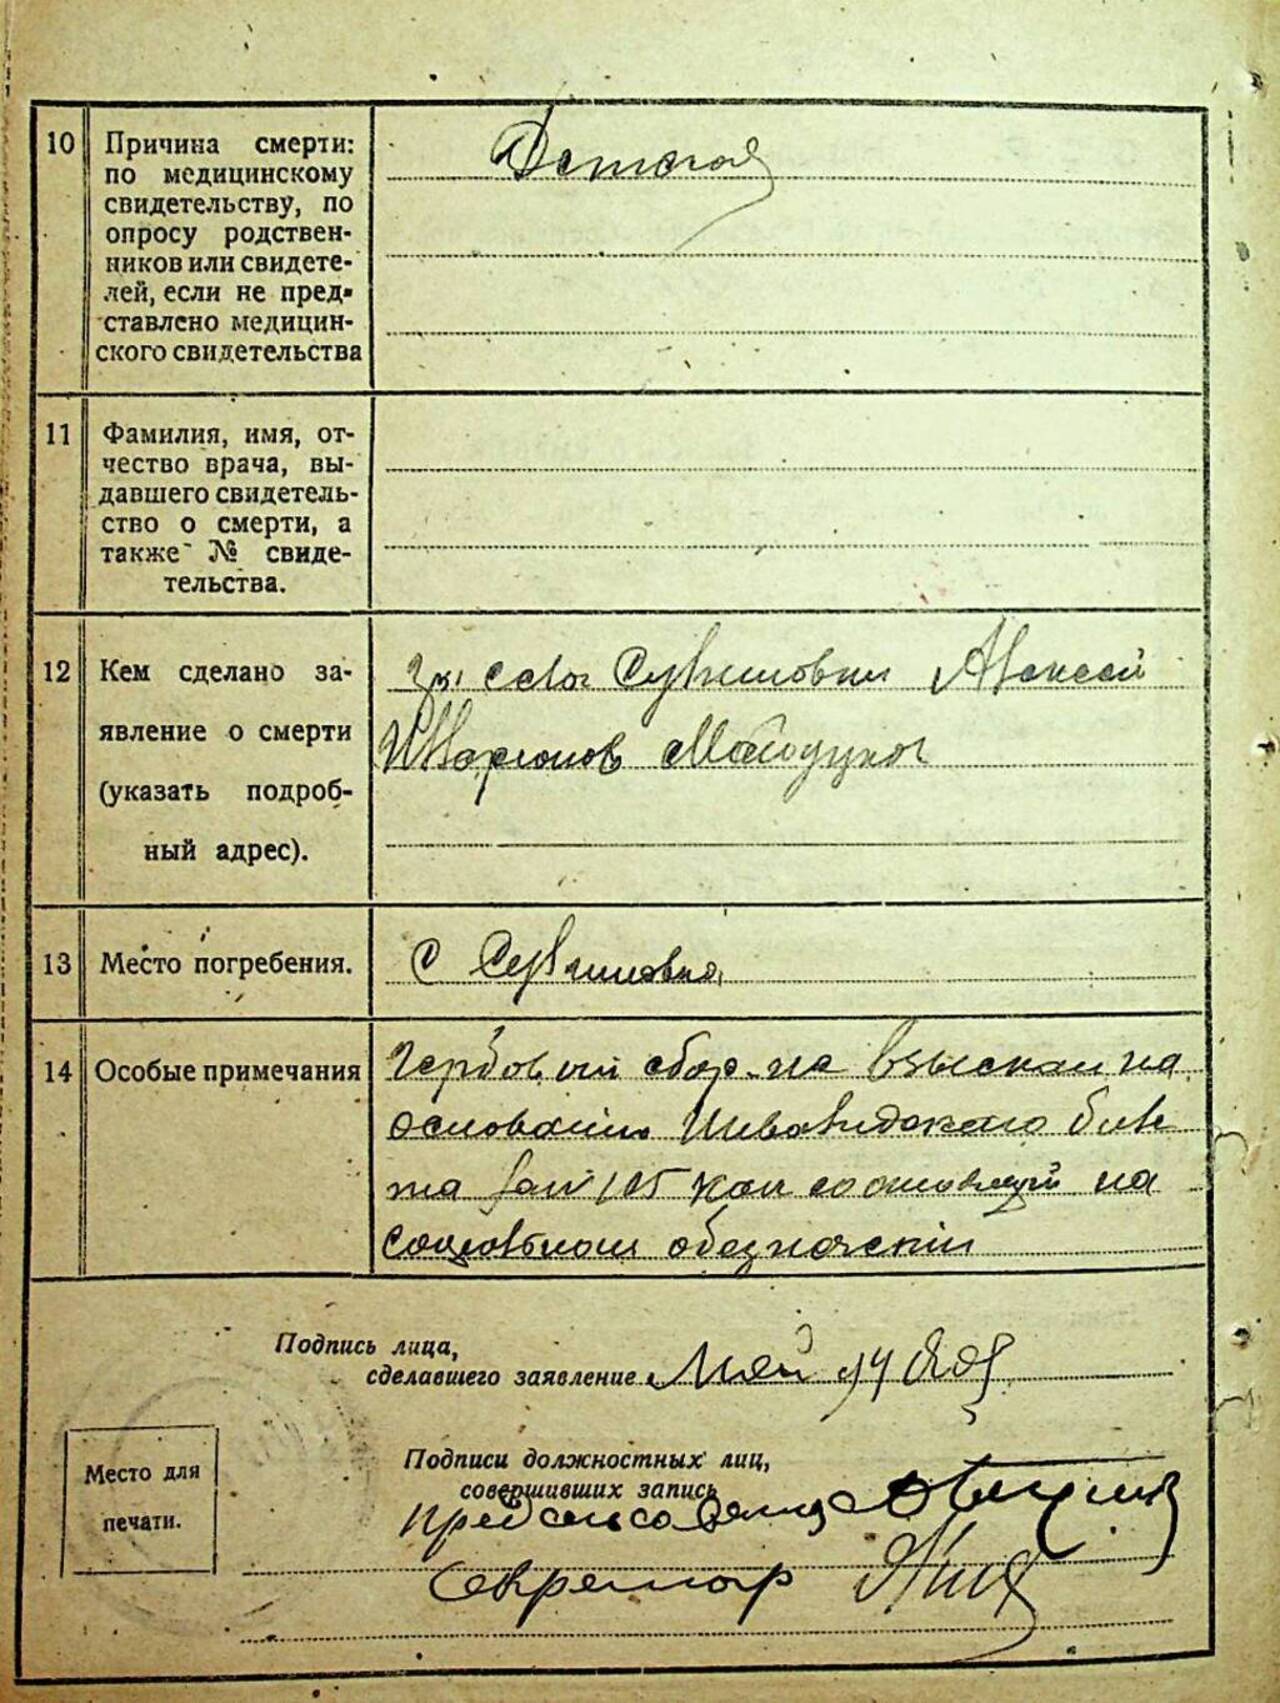 10 Причина смерти:
по медицинскому
свидетельству, по
опросу родствен-
ников или свидете-
лей, если не пред-
ставлено медицин-
ского свидетельства
Детская
11 Фамилия, имя, от-
чество врача, вы-
давшего свидетель-
ство о смерти, а
также № свиде-
тельства.
12 Кем сделано за-
явление о смерти
(указать подроб-
ный адрес).
села Алексей
13 Место погребения.
С
14 Особые примечания
Гербовый сбор не взыскан на
основании Инвалидского биле
та 105 на
обезпечении
Подпись лица,
сделавшего заявление
Подписи должностных лиц,
совершивших запись
Предсельсовета
Секретарь
Место для
печати.